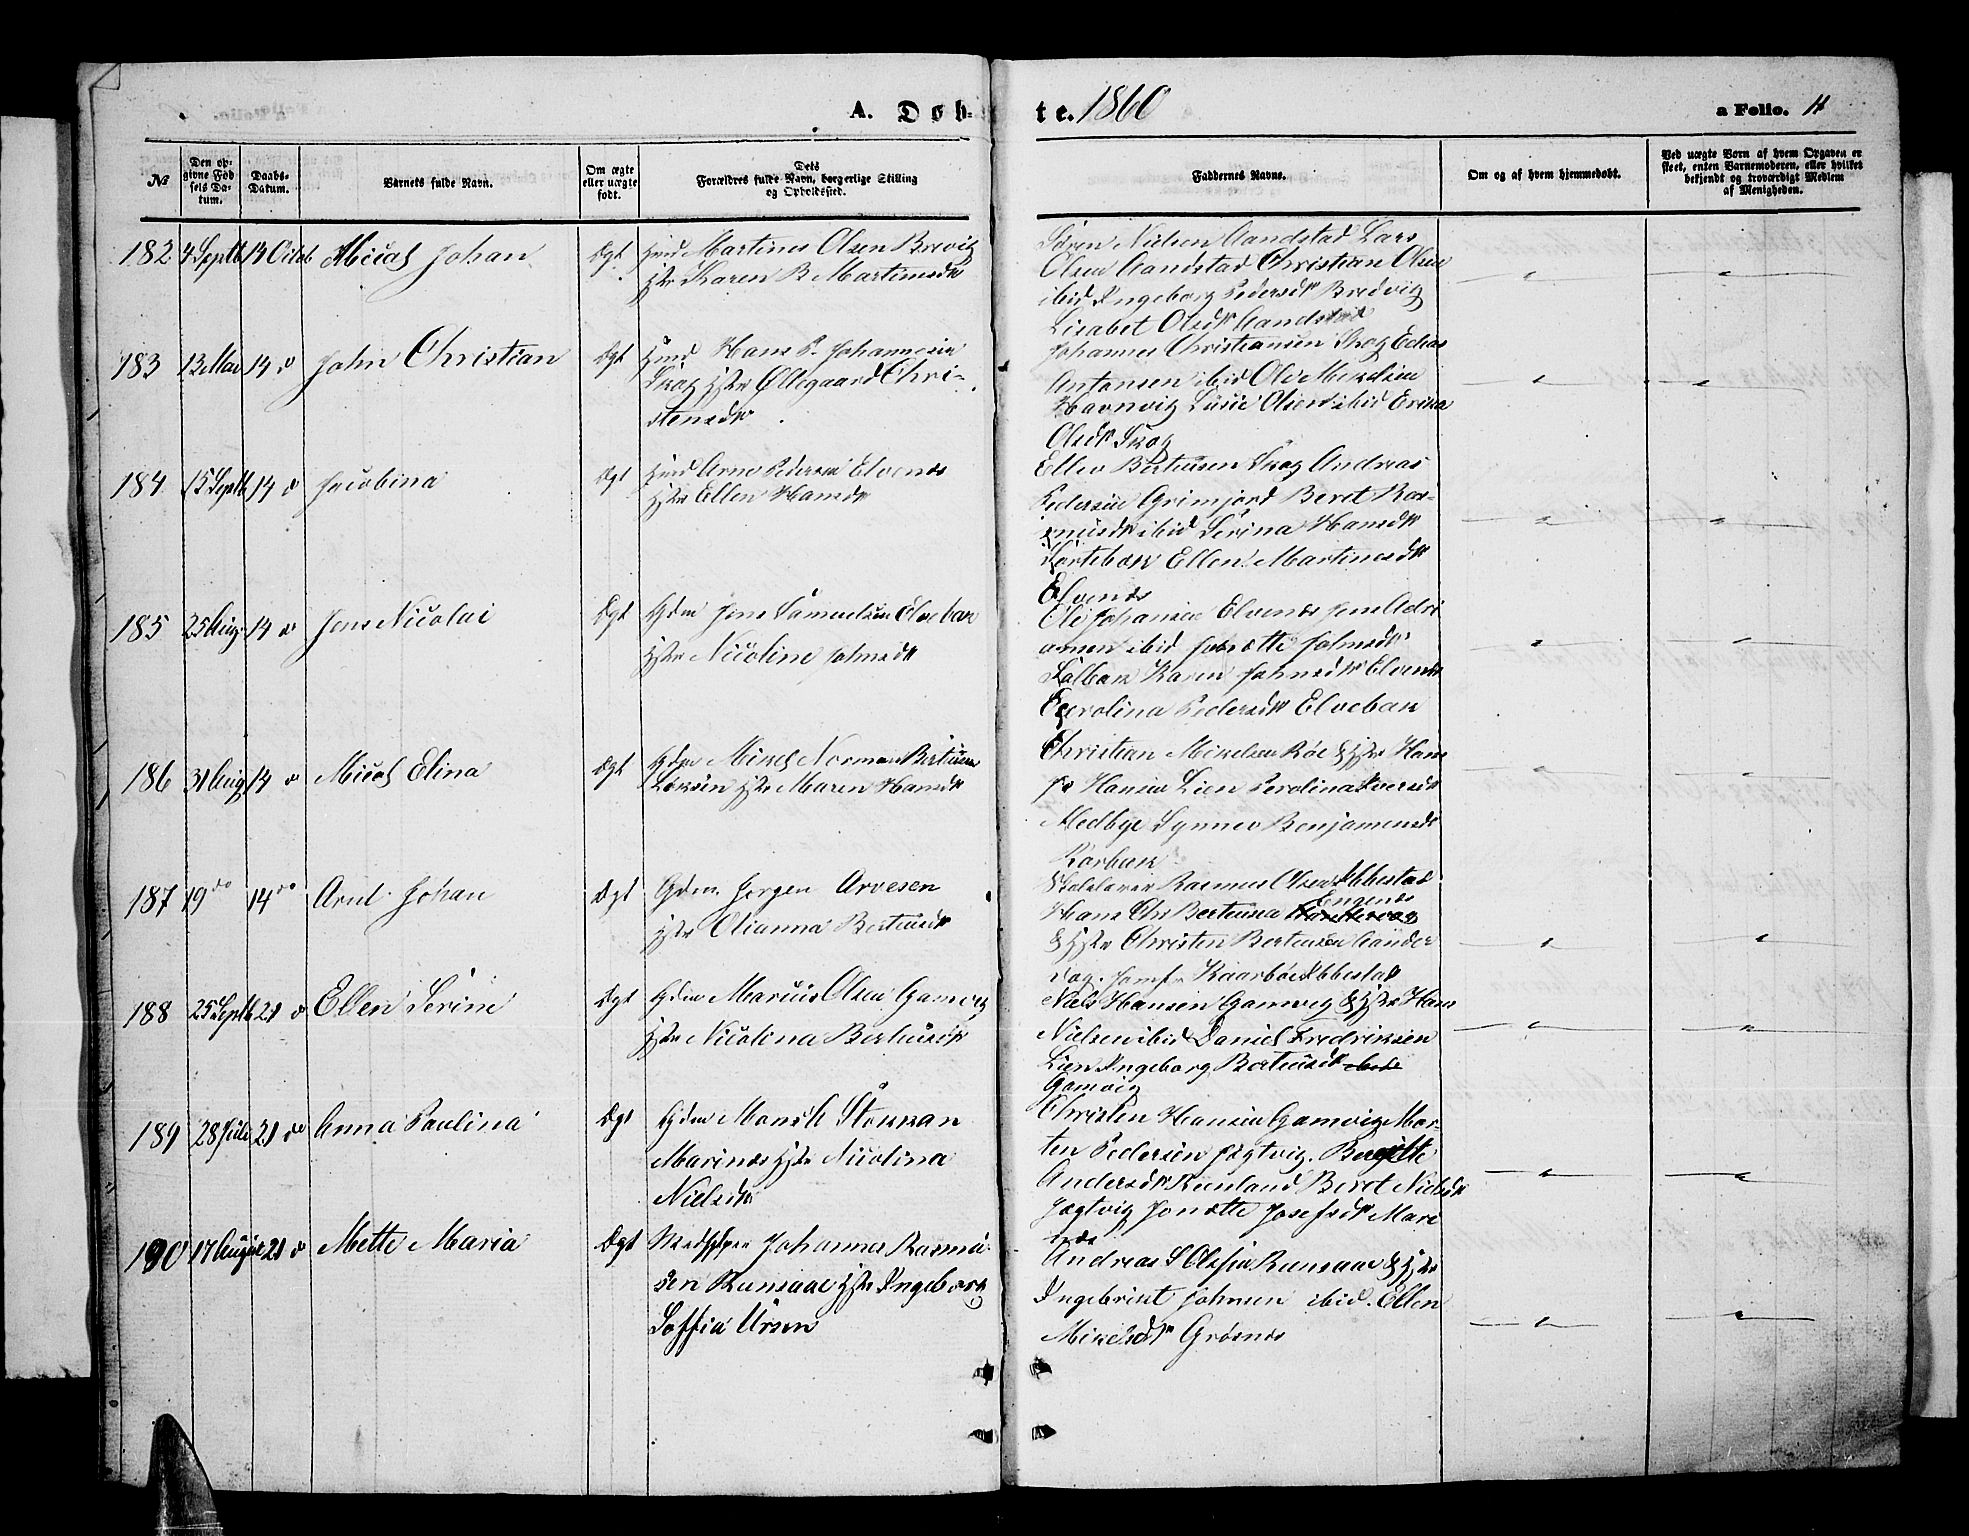 A. Døb-
te. 1860
a Folio. 4
№
Den op-
givne Fød-
sels Da-
tum.
Daabs-
Datum.
Barnets fulde Navn.
Om ægte
eller uægte
født.
Dets
Forældres fulde Navn, borgerlige Stilling
og Opholdssted.
Faddernes Navne.
Om og af hvem hjemmedøbt.
Ved uægte Børn af hvem Opgaven er
skeet, enten Barnemoderen, eller hvilket
bekjendt og troværdigt Medlem
af Menigheden.
182 4 Septb 14 Octob Johan Ægt Martinus Olsen Brevig
Hstr Karen B Martinsdtr
Søren Nielsen Aandstad Lars
Olsen Aandstad Christian Olsen
ibid Ingeborg Pedersdtr Bredvig
Lisabet Olsdtr Aandstad
183 13 Mai 14 do John Christian Ægt Hans P. Johannesen
Skog Hstr Øllegaard Chri-
stensdtr
Johannes Christiansen Skog Edias
Antonsen ibid Ole Mikelsen
Havnvig Olsen ibid Erika
Olsdtr Skog
184 15 Septb 14 do Jacobina Ægt Arne Pedersen Elvenes
Hstr Ellen Hansdtr
Ellev Bertheusen Skog Andreas
Pedersen Grimjord Beret Ras-
musdtr ibid Serina Hansdtr
Ellen Martinusdtr
Elvenes
185 25 Aug 14 do Jens Nicolai Ægt Gdm Jens Samuelsen Elvebak
Hstr Nicoline Johnsdtr
Ole Johansen Elvenes Jens Adri
ansen ibid Johnsdtr
Karen Johnsdtr Elvenes
Pedersdtr Elvebak
186 31 Aug 14 do Elina Ægt Gdm Mikel Norman Bertheusen
Hstr Maren Hansdtr
Christian Mikelsen Røe & Hstr Hans
Hansen Lien Perolina Iversdtr
Medbye Synnev Benjaminsdtr
187 19 do 14 do Arnt Johan Ægt Gdm. Jørgen Arvesen
Hstr Olianna Bertheusdtr
Skolelærer Rasmus Olsen Ibbestad
Hans Chr Bertheusen Engenes
& Hstr Christen Bertheusen Sander
vog. Jomfr Kaarbøe Ibbestad
188 25 Septb 21 do Ellen Serine Ægt Gdm Marius Olsen Gamvig
Hstr Nicolina Bertheusdtr
Niels Hansen Gamvig & Hstr Hans
Nielsen ibid Daniel Fredriksen
Lien Ingeborg Bertheusdtr
Gamvig
189 28 Juli 21 do Anna Paulina Ægt Gdm Mons Stokkan
Marines Hstr Nicolina
Nielsdtr
Christen Hansen Gamvig Mor-
ten Pedersen Jægtvig. Beregitte
Andersdtr Beret Nielsdtr
Jægtvig Jonette Josefsdtr Mari
nes
190 17 August 21 do Mette Maria Ægt Johannes Rasmu
sen Runsaae Hstr Ingeborg
Soffia Ursen
Andreas S Olsen Runsaae & Hstr
Ingebrigt Johnsen ibid. Ellen
Mikelsdtr Grøsnes